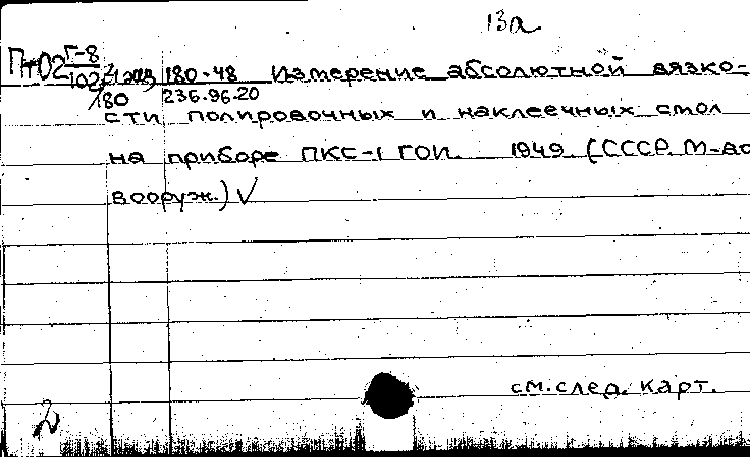 13а
ПтО2 Г-8/102 180-48 Измерение абсолютной вязко-
180 236.96.20
сти полировочных и наклеечных смол
на приборе ПКС-1 ГОИ. 1949. (СССР. М-во
вооруж.) V
см.след. карт.
2